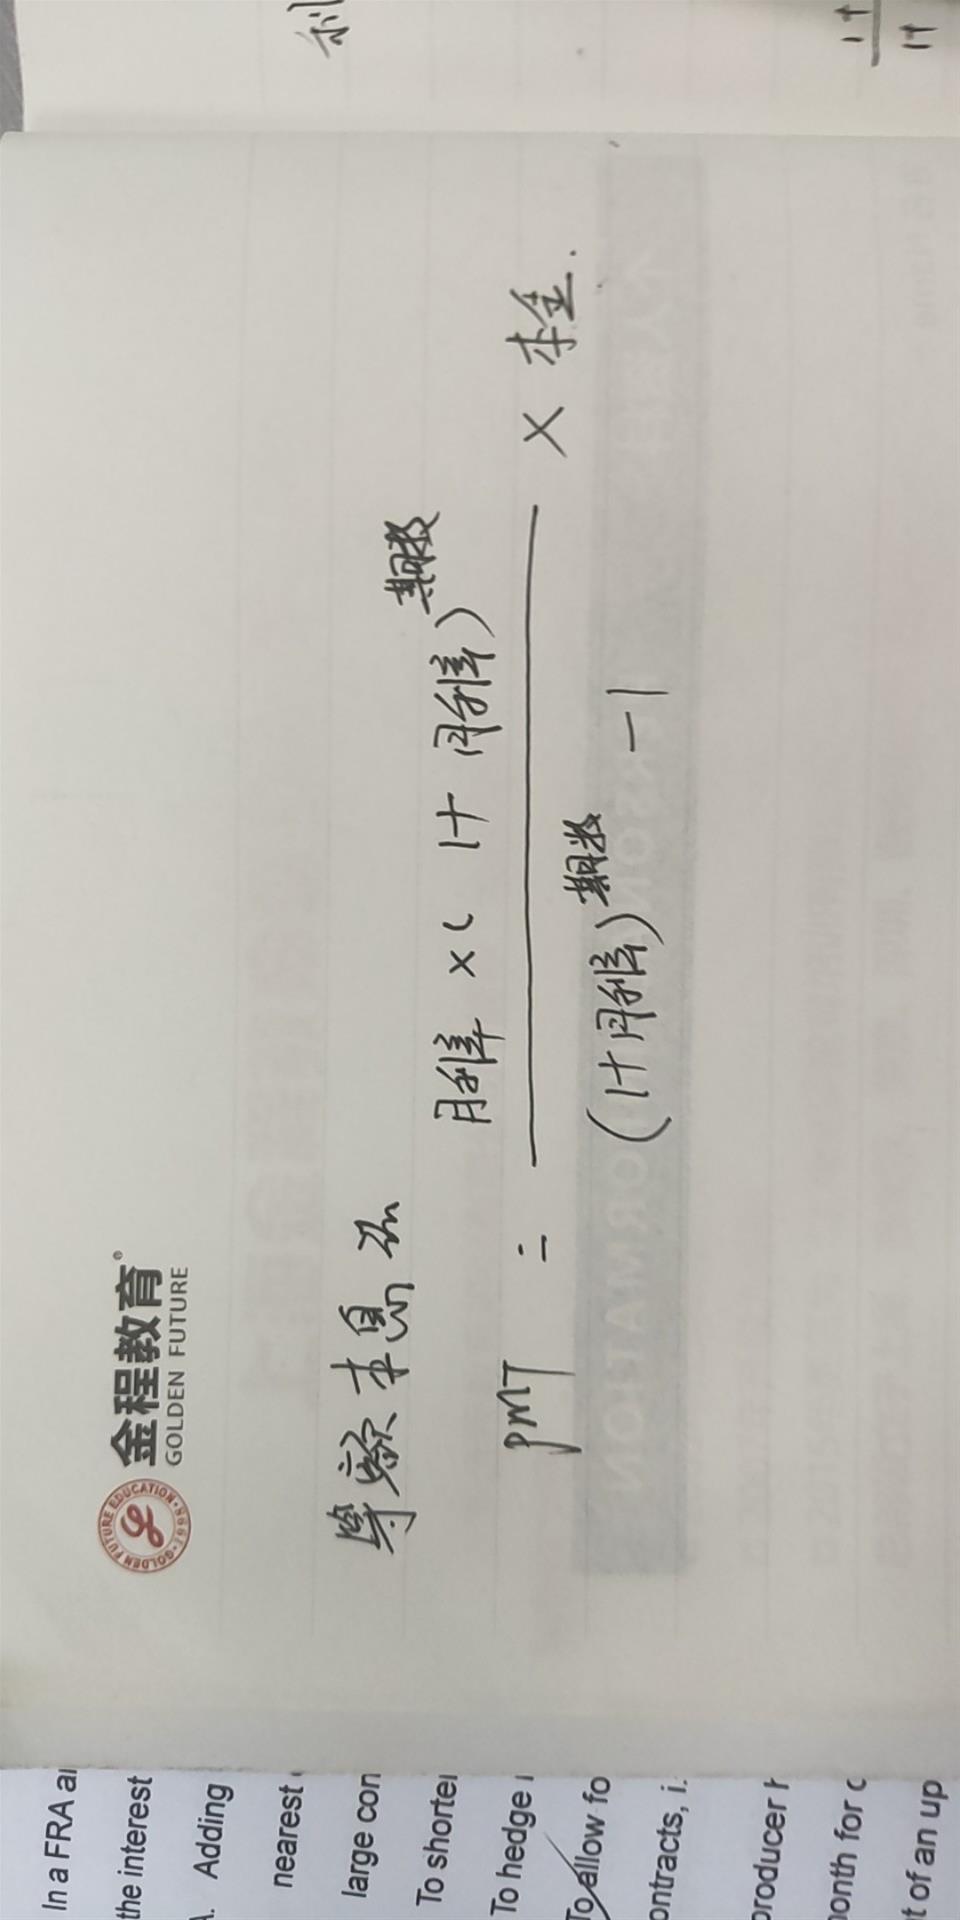 利
1+
1+
金程教育®
GOLDEN FUTURE
GOLDEN FUTURE EDUCATION·1998·
等额本息
月利率 × (1+月利率)期数
PMT = ———— × 本金.
(1+月利率)期数 -1
In a FRA a
the interest
A. Adding
nearest
large con
To shorte
To hedge
To allow fo
ontracts, i.
producer h
onth for c
t of an up